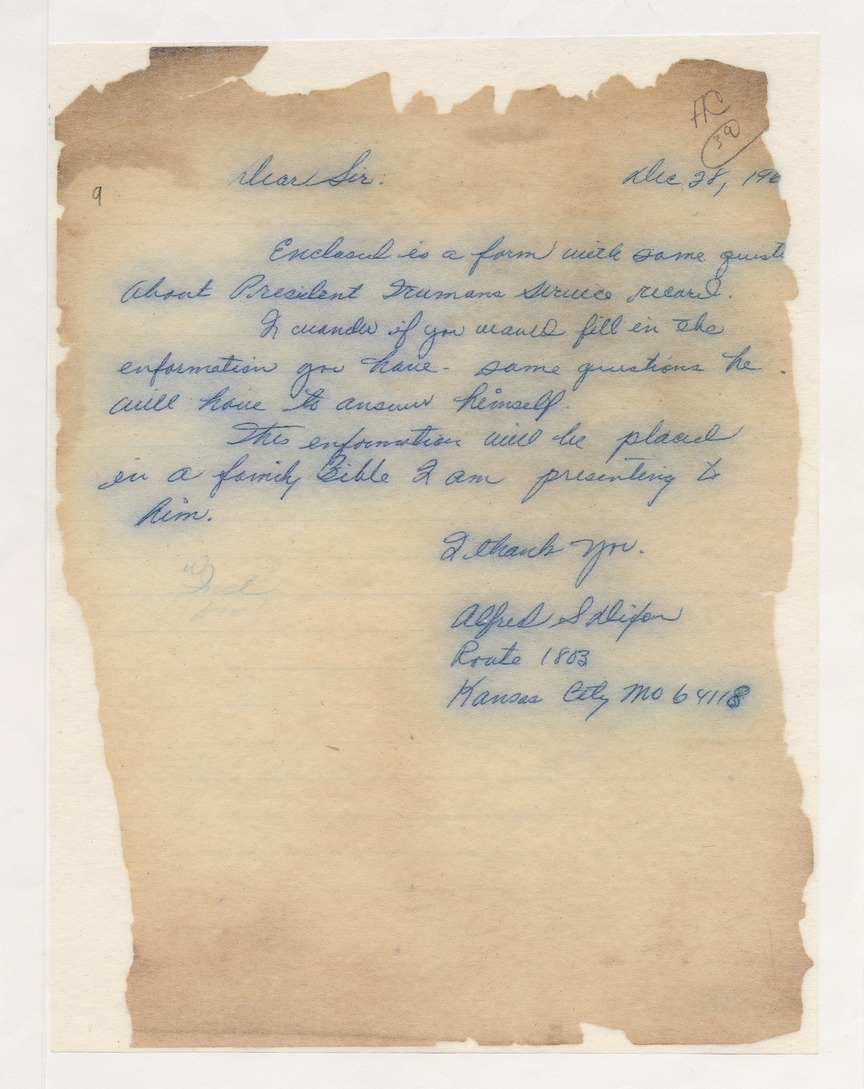 HC
39
9
Dear Sir. Dec 28, 196
Enclosed is a form with some quest
About President Trumans Service record.
I wonder if you would fill in the
enformation you have - some questions he
will have to answer himself.
This enformation will be placed
in a family Bible I am presenting to
him.
I thank you.
Alfred S Dixon
Route 1803
Kansas City Mo 64118